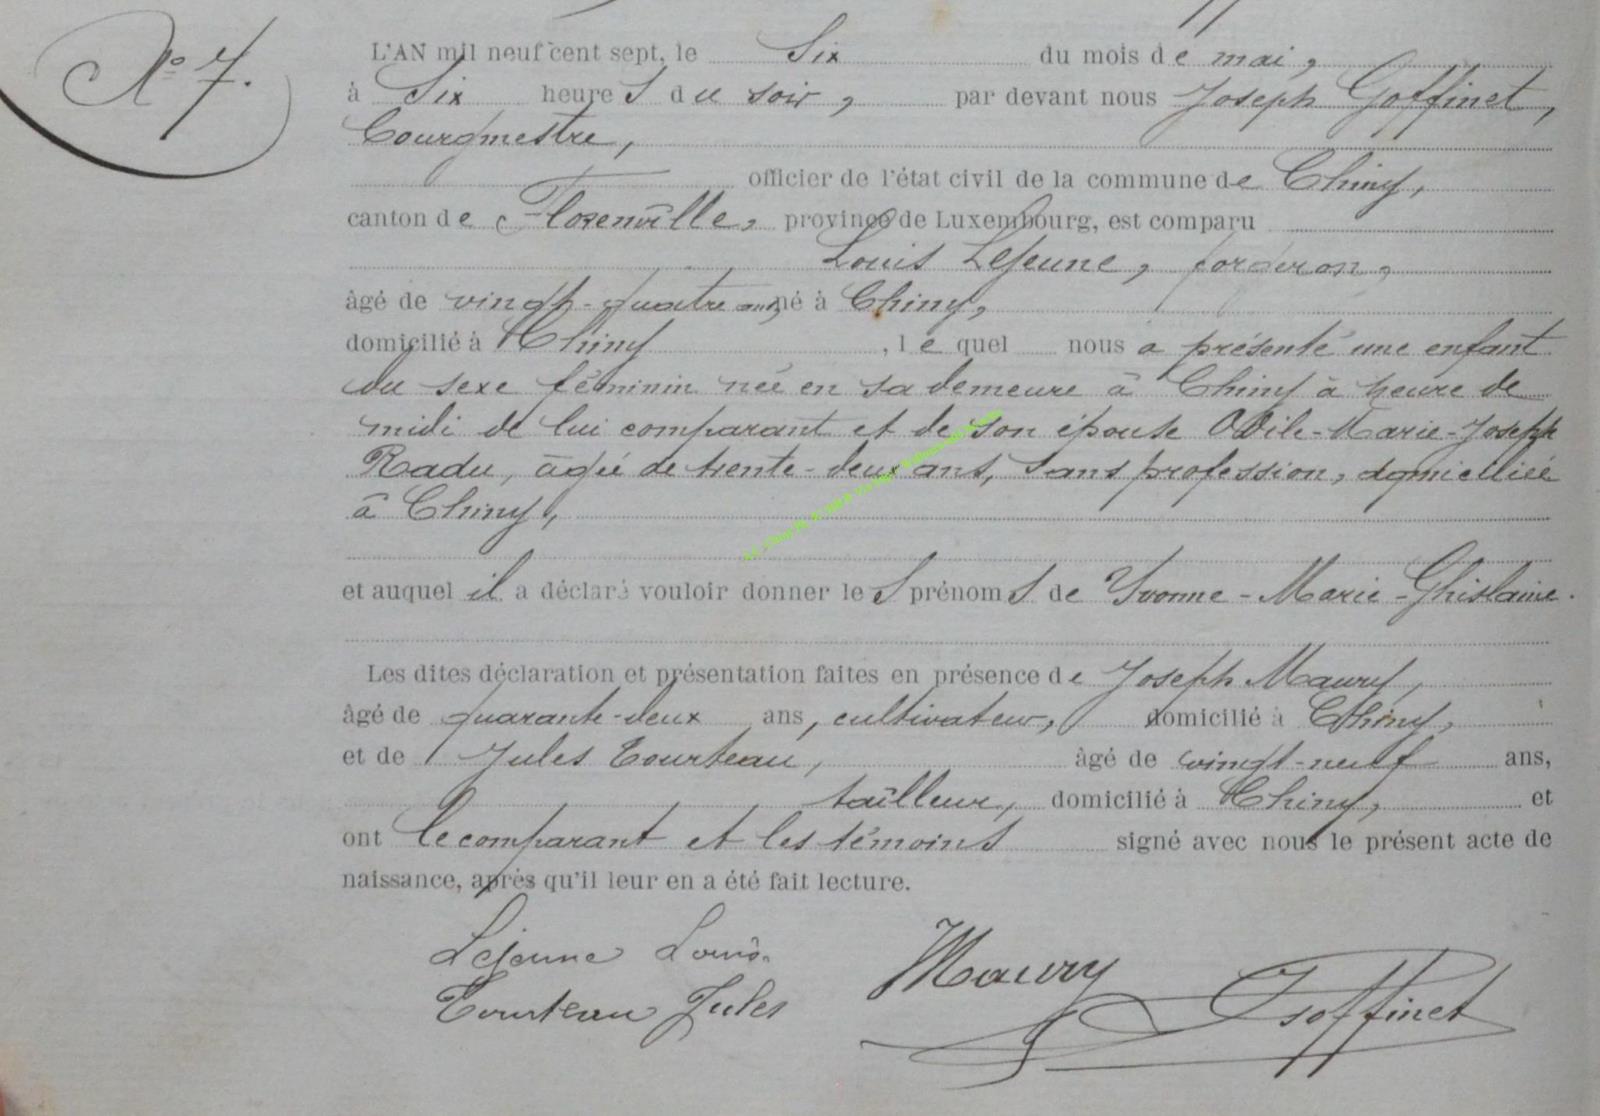 N° 7.
L'AN mil neuf cent sept, le Six du mois de mai,
à Six heures du soir, par devant nous Joseph Goffinet,
bourgmestre,
officier de l'état civil de la commune de Chiny,
canton de Florenville, province de Luxembourg, est comparu
Louis Lejeune, forgeron,
âgé de vingt-quatre ans, né à Chiny,
domicilié à Chiny, lequel nous a présenté une enfant
du sexe féminin née en sa demeure à Chiny à heure de
midi de lui comparant et de son épouse Odile-Marie-Joseph
Radu, âgée de trente-deux ans, sans profession, domiciliée
à Chiny,
et auquel il a déclaré vouloir donner les prénoms de Yvonne-Marie-Ghislaine.
Les dites déclaration et présentation faites en présence de Joseph Maury,
âgé de quarante-deux ans, cultivateur, domicilié à Chiny,
et de Jules Tourteau, âgé de vingt-neuf ans,
tailleur, domicilié à Chiny, et
ont le comparant et les témoins signé avec nous le présent acte de
naissance, après qu'il leur en a été fait lecture.
Lejeune Louis. Maury
Tourteau Jules JGoffinet